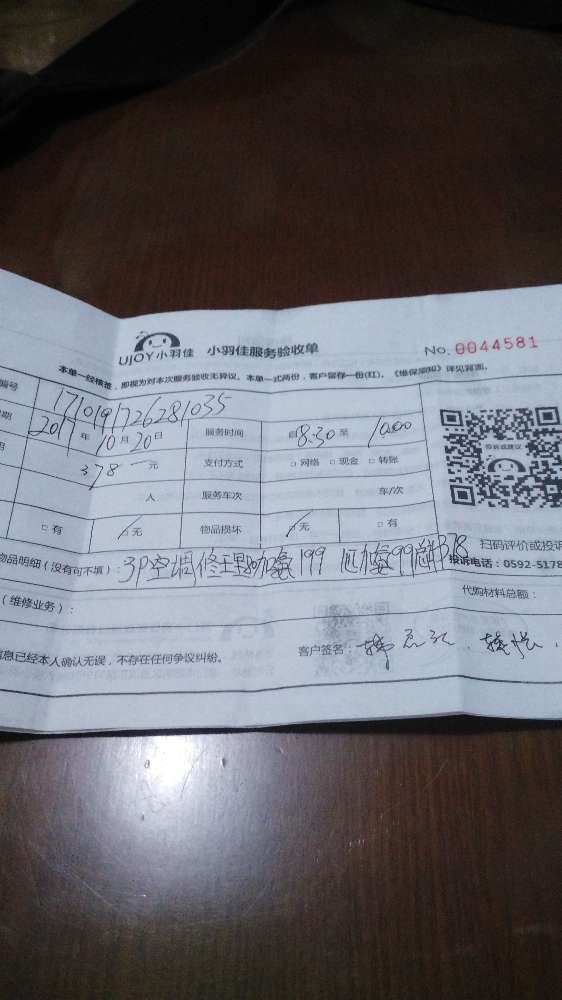 UJOY小羽佳 小羽佳服务验收单 No. 0044581
本单一经核签，即视为对本次服务验收无异议。本单一式两份，客户留存一份(红)，《维保须知》详见背面。
编号 1710191726281035
期 2017 年 10 月 20 日 服务时间 自 8:30 至 10:00
378 元 支付方式 □ 网络 □ 现金 □ 转账
人 服务车次 车/次
□ 有 □ 无 物品损坏 □ 无 □ 有
投诉或建议
扫码评价或投诉
物品明细（没有可不填）： 3P空调修理 加氟199 99 378
投诉电话：0592-5178
（维修业务）： 代购材料总额：
息已经本人确认无误，不存在任何争议纠纷。 客户签名：